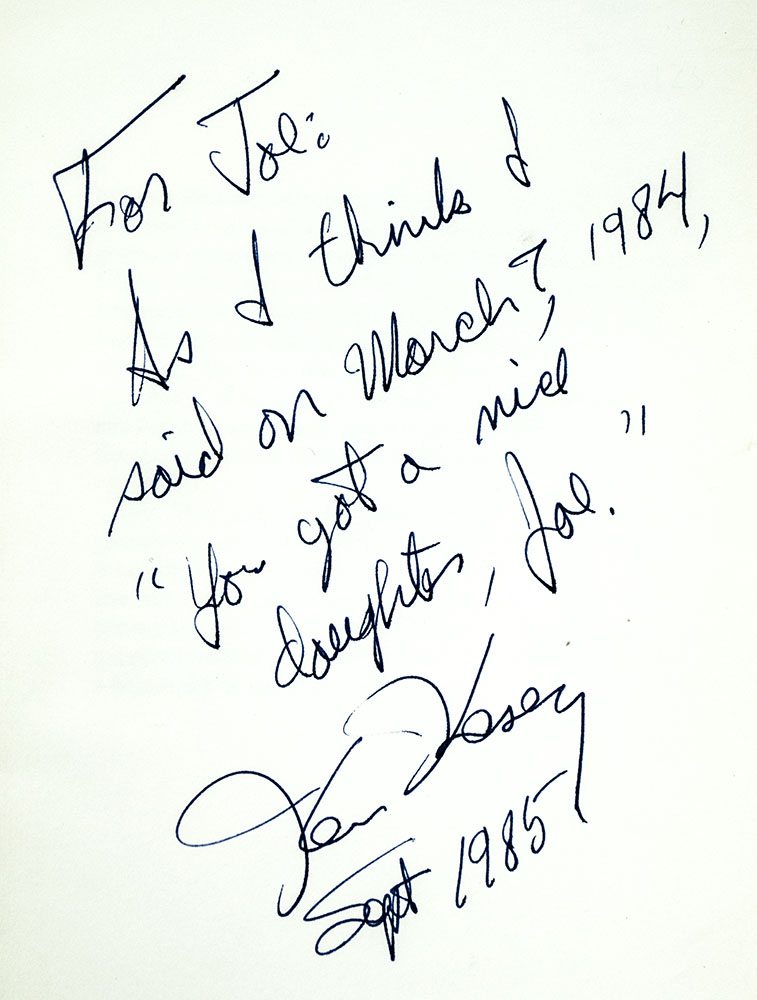 For Joe:
As I think I
said on March 7, 1984,
"You got a nice
daughter, Joe."
Ken Kesey
Sept 1985